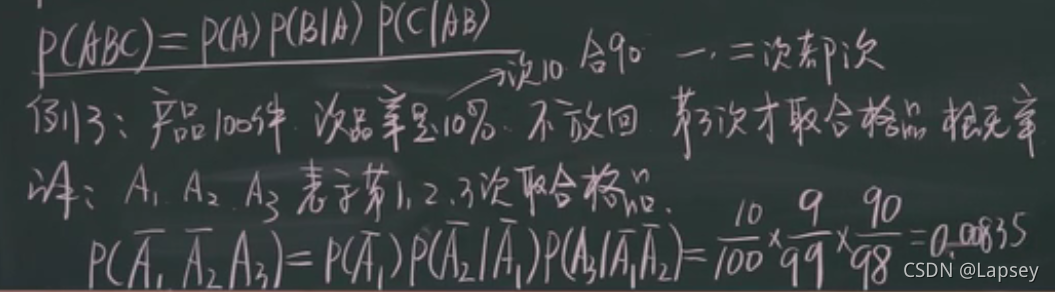 P(ABC)=P(A)P(B|A)P(C|AB)
→次10 合90 一.二次都次
例13: 产品100件 次品率是10% 不放回 第3次才取合格品 概率
解: A₁ A₂ A₃ 表示第1,2,3次取合格品.
P(A̅₁ A̅₂ A₃)=P(A̅₁)P(A̅₂|A̅₁)P(A₃|A̅₁A̅₂)=10/100×9/99×90/98=0.00835
CSDN @Lapsey